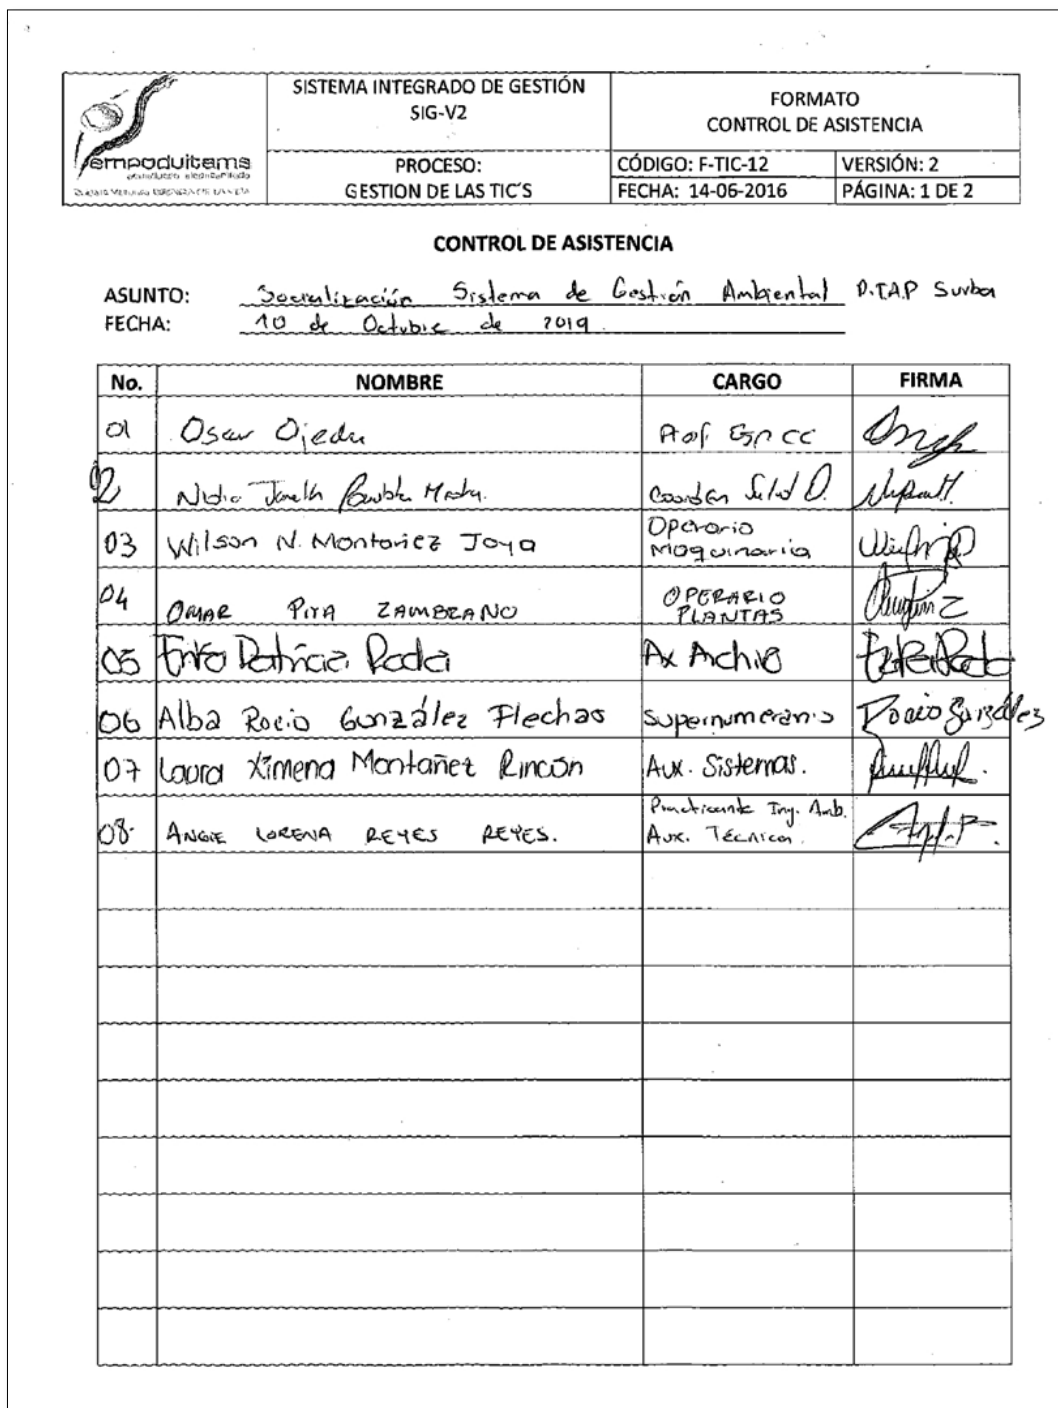 SISTEMA INTEGRADO DE GESTIÓN
SIG-V2
FORMATO
CONTROL DE ASISTENCIA
empoduitama
PROCESO:
GESTION DE LAS TIC´S
CÓDIGO: F-TIC-12
VERSIÓN: 2
FECHA: 14-06-2016
PÁGINA: 1 DE 2
CONTROL DE ASISTENCIA
ASUNTO: Socialización Sistema de Gestión Ambiental P.TAP Surba
FECHA: 10 de Octubre de 2019.
No. NOMBRE CARGO FIRMA
01 Oscar Ojeda
02 Nidia
03 Wilson N. Montañez Joya Operario Maquinaria
04 OMAR PITA ZAMBRANO OPERARIO PLANTAS
05 Patricia Ax Archivo
06 Alba Rocio González Flechas supernumerario Rocio González
07 Laura Ximena Montañez Rincón Aux. Sistemas.
08. ANGIE LORENA REYES REYES. Practicante Ing. Amb. Aux. Técnica.